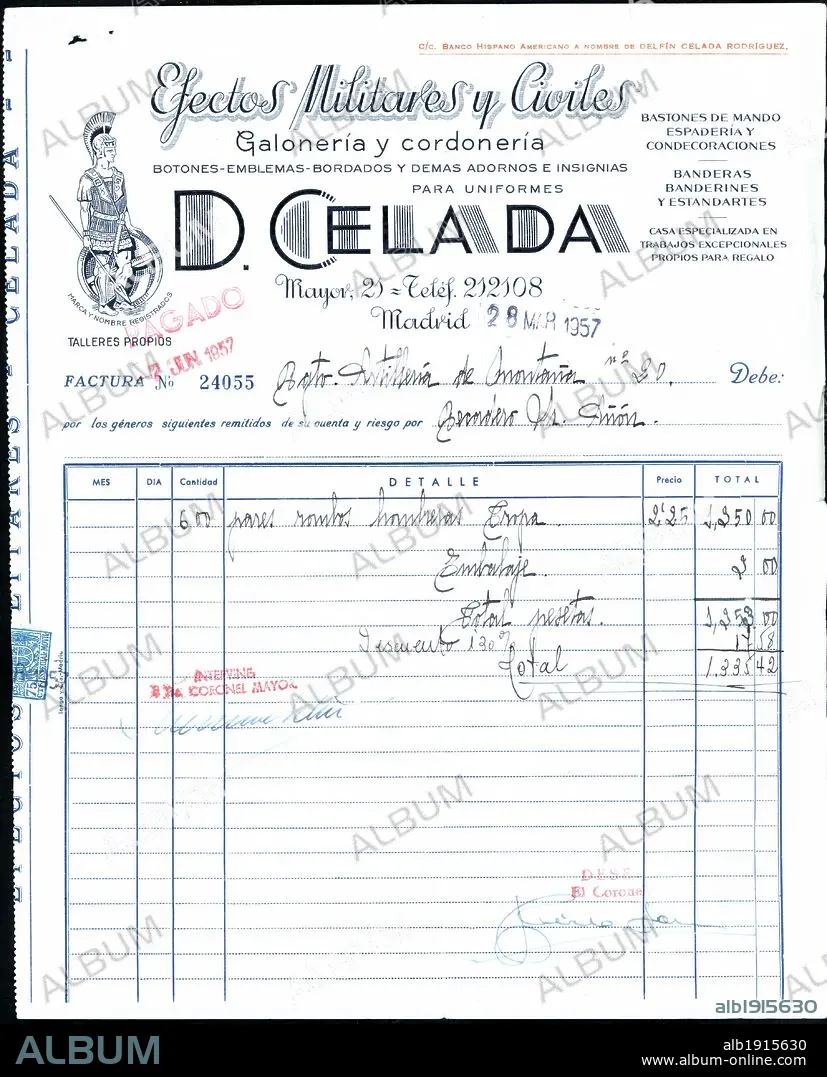 C/c. Banco Hispano Americano a nombre de DELFÍN CELADA RODRÍGUEZ.
Efectos Militares y Civiles
Galonería y cordonería
BOTONES-EMBLEMAS-BORDADOS Y DEMAS ADORNOS E INSIGNIAS
PARA UNIFORMES
D. CELADA
Mayor, 21 = Teléf. 212108
Madrid 28 MAR 1957
BASTONES DE MANDO
ESPADERÍA Y
CONDECORACIONES
BANDERAS
BANDERINES
Y ESTANDARTES
CASA ESPECIALIZADA EN
TRABAJOS EXCEPCIONALES
PROPIOS PARA REGALO
MARCA Y NOMBRE REGISTRADOS
TALLERES PROPIOS
PAGADO
JUN 1957
FACTURA No 24055 Rgto. Artillería de Montaña nº 20. Debe:
por los géneros siguientes remitidos de su cuenta y riesgo por
MES DIA Cantidad DETALLE Precio TOTAL
600 pares rombos hombreras Tropa 2'25 1,350 00
Embalaje. 3 00
Total pesetas. 1,353.00
Descuento 1'30% 17 58
Total 1.335 42
INTERVINE
CORONEL MAYOR
DESE
El Corone
EFECTOS MILITARES - CELADA -
75
ALBUM
alb1915630
ALBUM
alb1915630
www.album-online.com